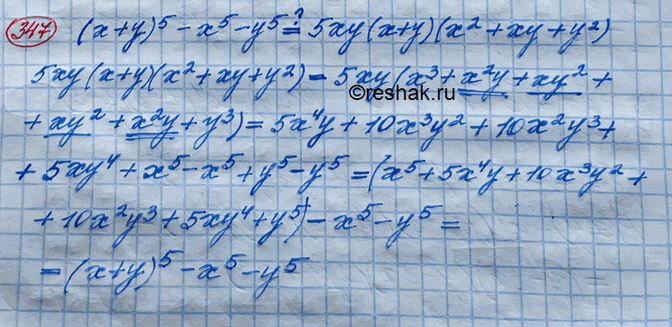 347 (x+y)⁵ - x⁵ - y⁵ ≟ 5xy(x+y)(x²+xy+y²)
5xy(x+y)(x²+xy+y²) = 5xy(x³+x²y+xy²+
©reshak.ru
+xy²+x²y+y³) = 5x⁴y+10x³y²+10x²y³+
+5xy⁴+x⁵-x⁵+y⁵-y⁵ = (x⁵+5x⁴y+10x³y²+
+10x²y³+5xy⁴+y⁵)-x⁵-y⁵ =
= (x+y)⁵-x⁵-y⁵